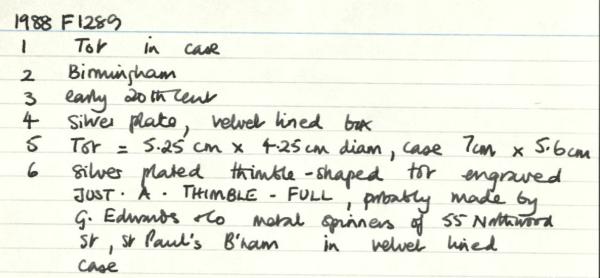 1988 F1289
1 Tot in case
2 Birmingham
3 early 20th Cent
4 Silver plate, velvet lined box
5 Tot = 5.25 cm x 4.25 cm diam, case 7cm x 5.6cm
6 Silver plated thimble-shaped tot engraved
JUST · A · THIMBLE - FULL, probably made by
G. Edwards & Co metal spinners of 55 Northwood
St, St Paul's B'ham in velvet lined
case